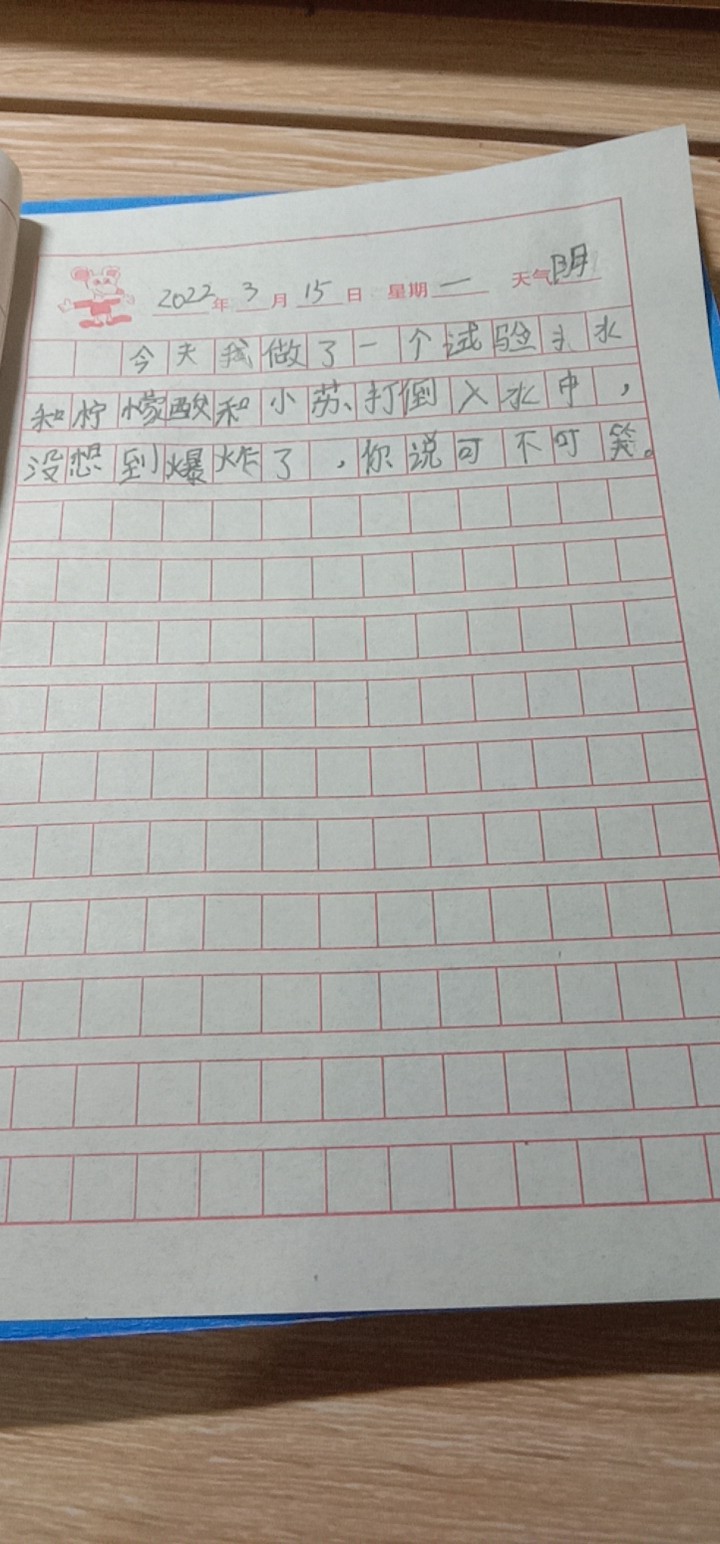 2022年3月15日 星期一 天气阴
今天我做了一个试验 水
和柠檬酸和小苏打倒入水中，
没想到爆炸了，你说可不可笑。